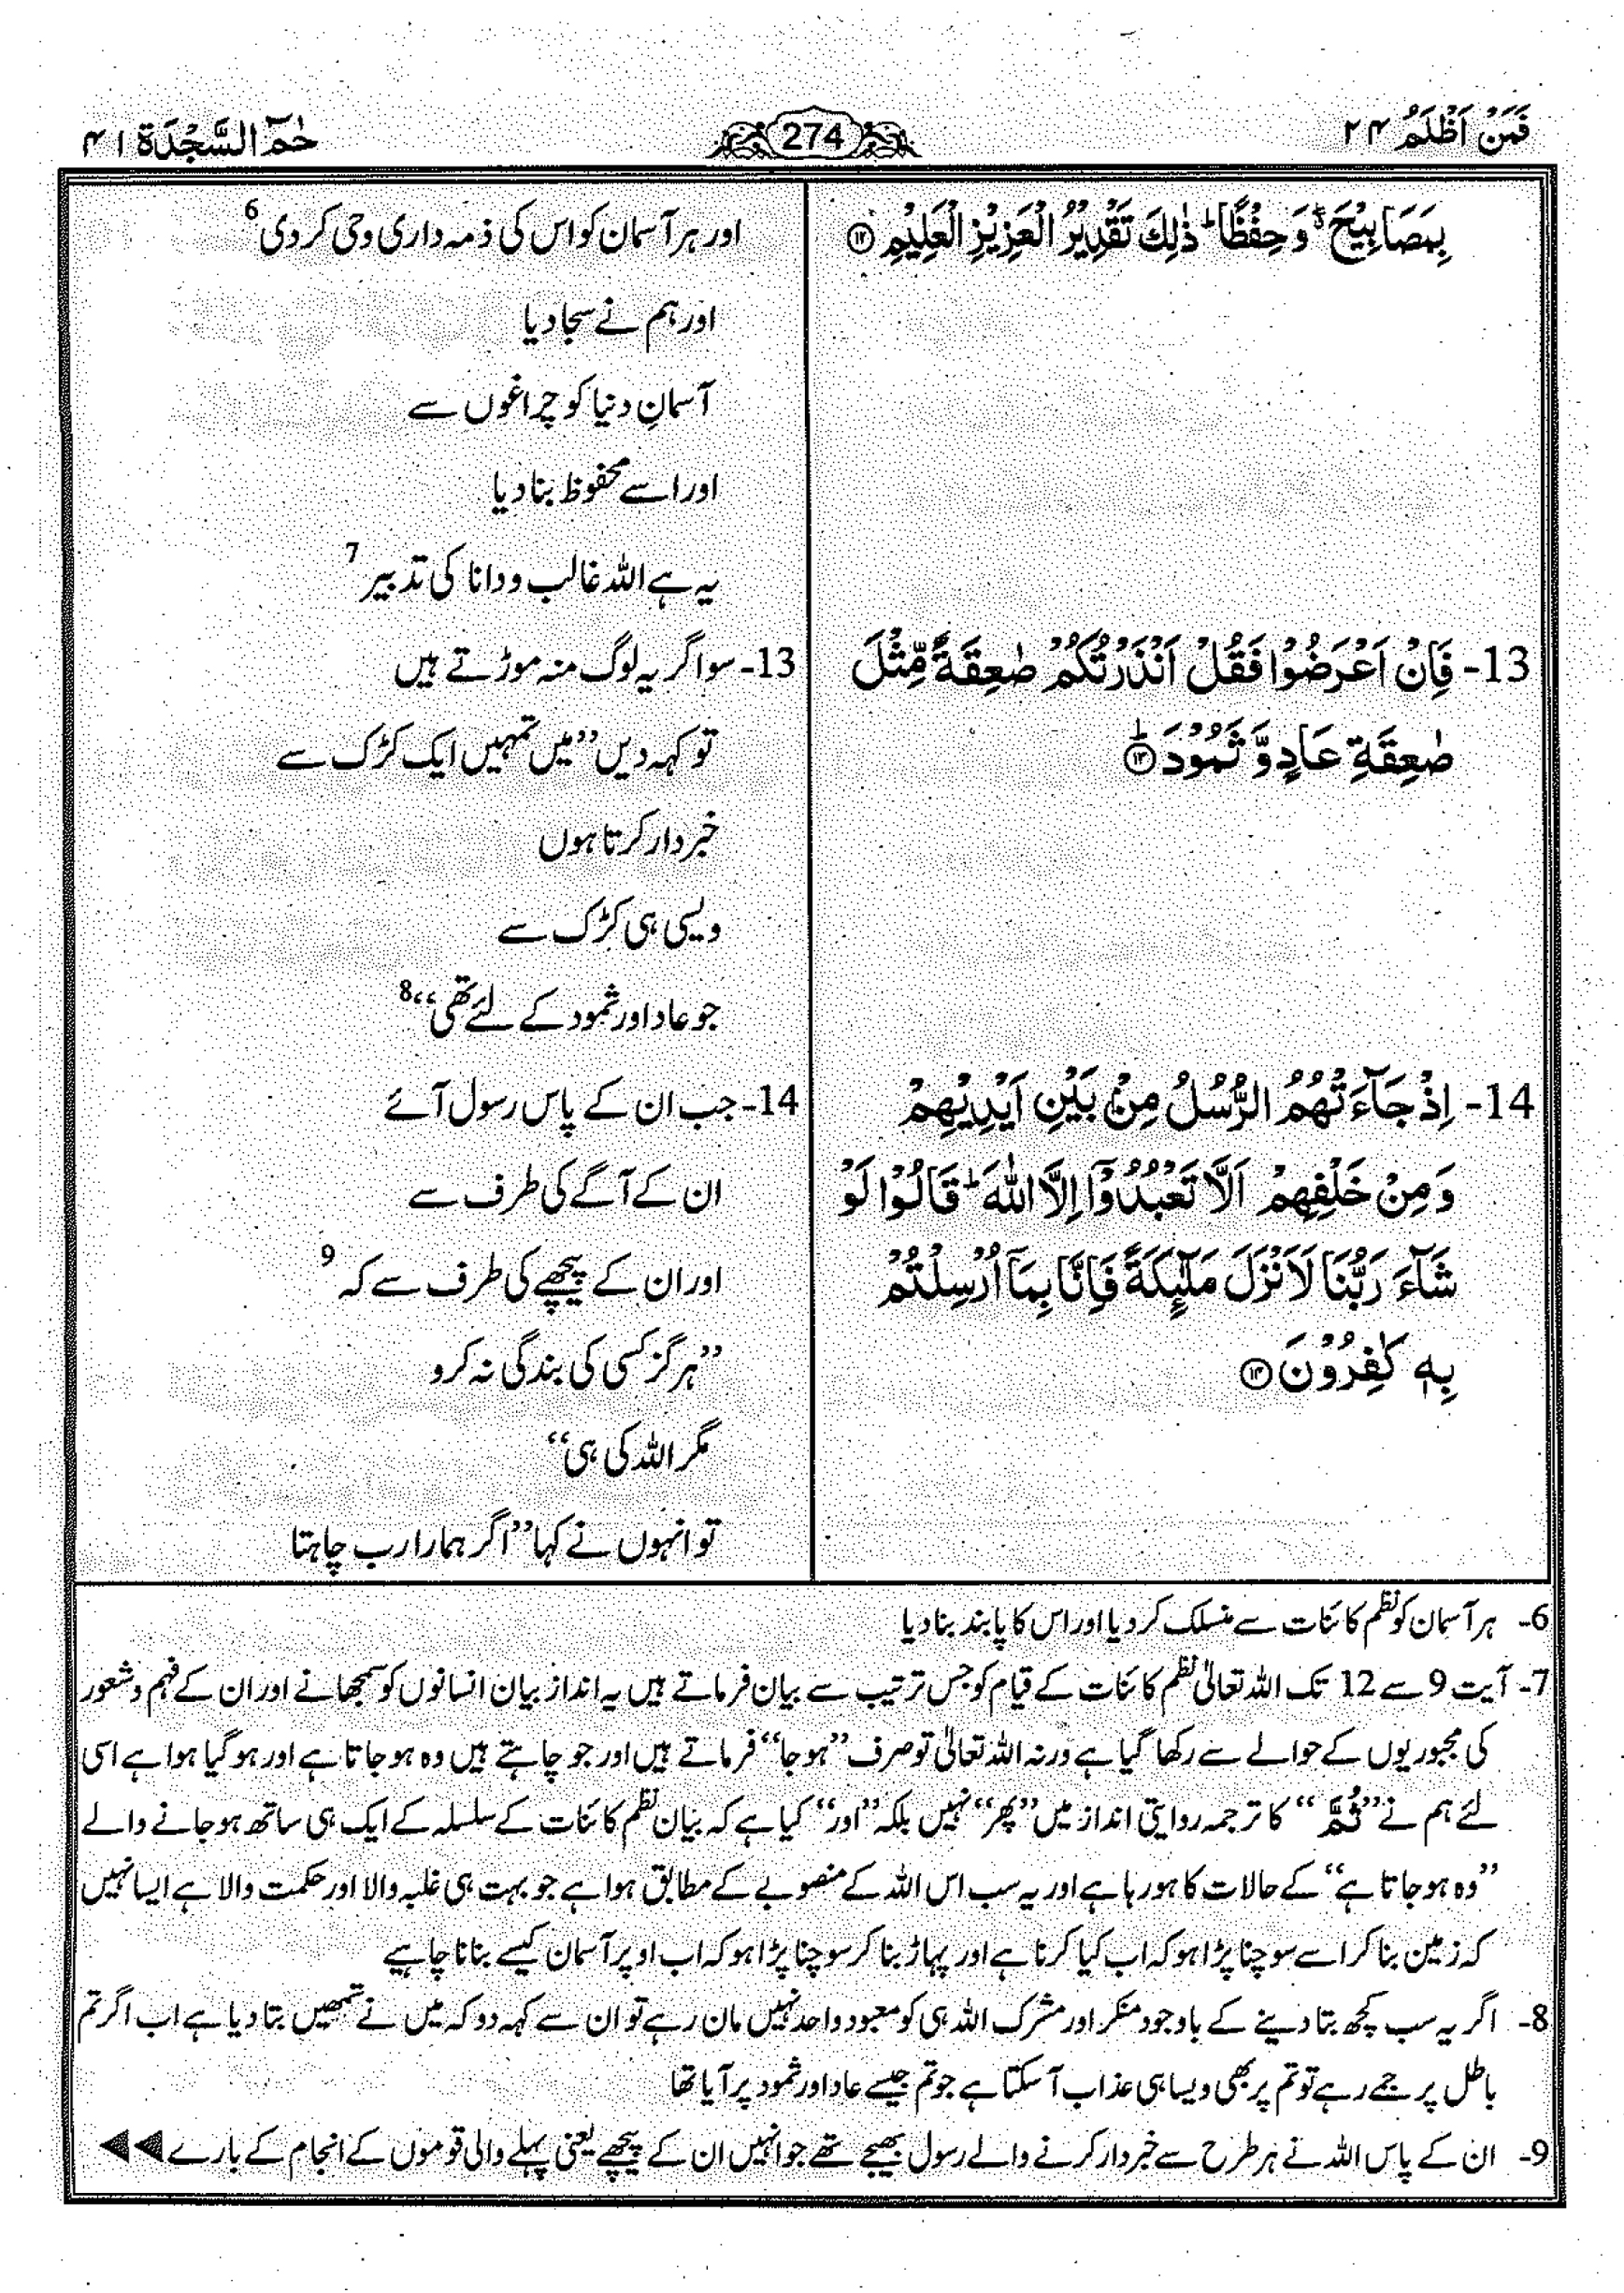 فَمَنْ اَظْلَمُ ۲۴
274
حٰمٓ السَّجْدَة ۴۱
بِمَصَابِيْحَ ۖ وَحِفْظًا ؕ ذٰلِكَ تَقْدِيْرُ الْعَزِيْزِ الْعَلِيْمِ ﴿۱۲﴾
13- فَاِنْ اَعْرَضُوْا فَقُلْ اَنْذَرْتُكُمْ صٰعِقَةً مِّثْلَ
صٰعِقَةِ عَادٍ وَّ ثَمُوْدَ ؕ ﴿۱۳﴾
14- اِذْ جَآءَتْهُمُ الرُّسُلُ مِنْۢ بَيْنِ اَيْدِيْهِمْ
وَمِنْ خَلْفِهِمْ اَلَّا تَعْبُدُوْٓا اِلَّا اللّٰهَ ؕ قَالُوْا لَوْ
شَآءَ رَبُّنَا لَاَنْزَلَ مَلٰٓئِكَةً فَاِنَّا بِمَآ اُرْسِلْتُمْ
بِهٖ كٰفِرُوْنَ ﴿۱۴﴾
اور ہر آسمان کو اس کی ذمہ داری وحی کر دی 6
اور ہم نے سجا دیا
آسمانِ دنیا کو چراغوں سے
اور اسے محفوظ بنا دیا
یہ ہے اللہ غالب و دانا کی تدبیر 7
13- سو اگر یہ لوگ منہ موڑتے ہیں
تو کہہ دیں ’’میں تمہیں ایک کڑک سے
خبردار کرتا ہوں
ویسی ہی کڑک سے
جو عاد اور ثمود کے لئے تھی‘‘ 8
14- جب ان کے پاس رسول آئے
ان کے آگے کی طرف سے
اور ان کے پیچھے کی طرف سے کہ 9
’’ہرگز کسی کی بندگی نہ کرو
مگر اللہ کی ہی‘‘
تو انہوں نے کہا ’’اگر ہمارا رب چاہتا
6- ہر آسمان کو نظم کائنات سے منسلک کر دیا اور اس کا پابند بنا دیا
7- آیت 9 سے 12 تک اللہ تعالیٰ نظم کائنات کے قیام کو جس ترتیب سے بیان فرماتے ہیں یہ انداز بیان انسانوں کو سمجھانے اور ان کے فہم و شعور
کی مجبوریوں کے حوالے سے رکھا گیا ہے ورنہ اللہ تعالیٰ تو صرف ’’ہو جا‘‘ فرماتے ہیں اور جو چاہتے ہیں وہ ہو جاتا ہے اور ہو گیا ہوا ہے اسی
لئے ہم نے ’’ثُمَّ‘‘ کا ترجمہ روایتی انداز میں ’’پھر‘‘ نہیں بلکہ ’’اور‘‘ کیا ہے کہ بیان نظم کائنات کے سلسلہ کے ایک ہی ساتھ ہو جانے والے
’’وہ ہو جاتا ہے‘‘ کے حالات کا ہو رہا ہے اور یہ سب اس اللہ کے منصوبے کے مطابق ہوا ہے جو بہت ہی غلبہ والا اور حکمت والا ہے ایسا نہیں
کہ زمین بنا کر اسے سوچنا پڑا ہو کہ اب کیا کرنا ہے اور پہاڑ بنا کر سوچنا پڑا ہو کہ اب اوپر آسمان کیسے بنانا چاہیے
8- اگر یہ سب کچھ بتا دینے کے باوجود منکر اور مشرک اللہ ہی کو معبود واحد نہیں مان رہے تو ان سے کہہ دو کہ میں نے تمھیں بتا دیا ہے اب اگر تم
باطل پر جمے رہے تو تم پر بھی ویسا ہی عذاب آ سکتا ہے جو تم جیسے عاد اور ثمود پر آیا تھا
9- ان کے پاس اللہ نے ہر طرح سے خبردار کرنے والے رسول بھیجے تھے جو انہیں ان کے پیچھے یعنی پہلے والی قوموں کے انجام کے بارے ◀◀